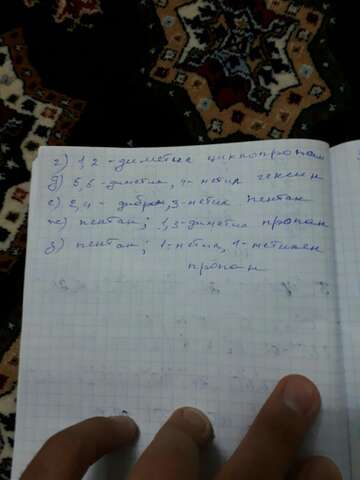 г) 1,2 - диметил циклопропан
д) 5,6 - диметил, 4 - метил гексин
е) 2,4 - дибром, 3 - метил пентан
ж) пентан; 1,3 - диметил пропан
з) пентан; 1 - метил, 1 - метилен
пропан